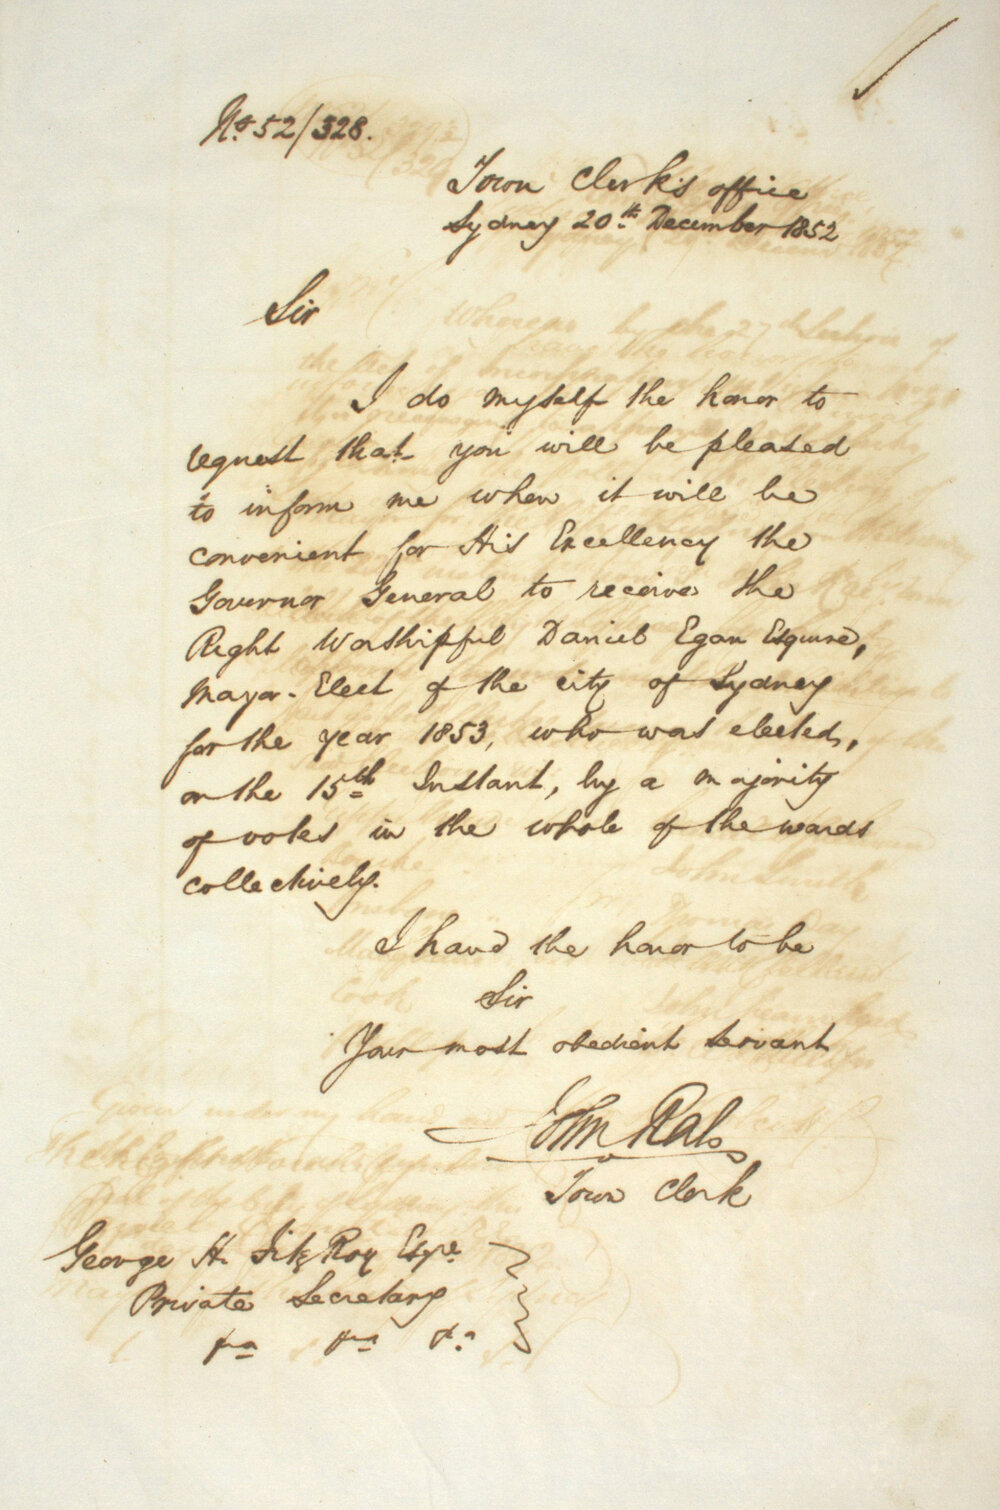 No. 52/328.
Town Clerk's office
Sydney 20th December 1852
Sir
I do myself the honor to
request that you will be pleased
to inform me when it will be
convenient for His Excellency the
Governor General to receive the
Right Worshipful Daniel Egan Esquire,
Mayor-Elect of the city of Sydney
for the year 1853, who was elected,
on the 15th Instant, by a majority
of votes in the whole of the wards
collectively.
I have the honor to be
Sir
Your most obedient servant
John Rae
Town Clerk
George H. FitzRoy Esqre.
Private Secretary
&c &c &c